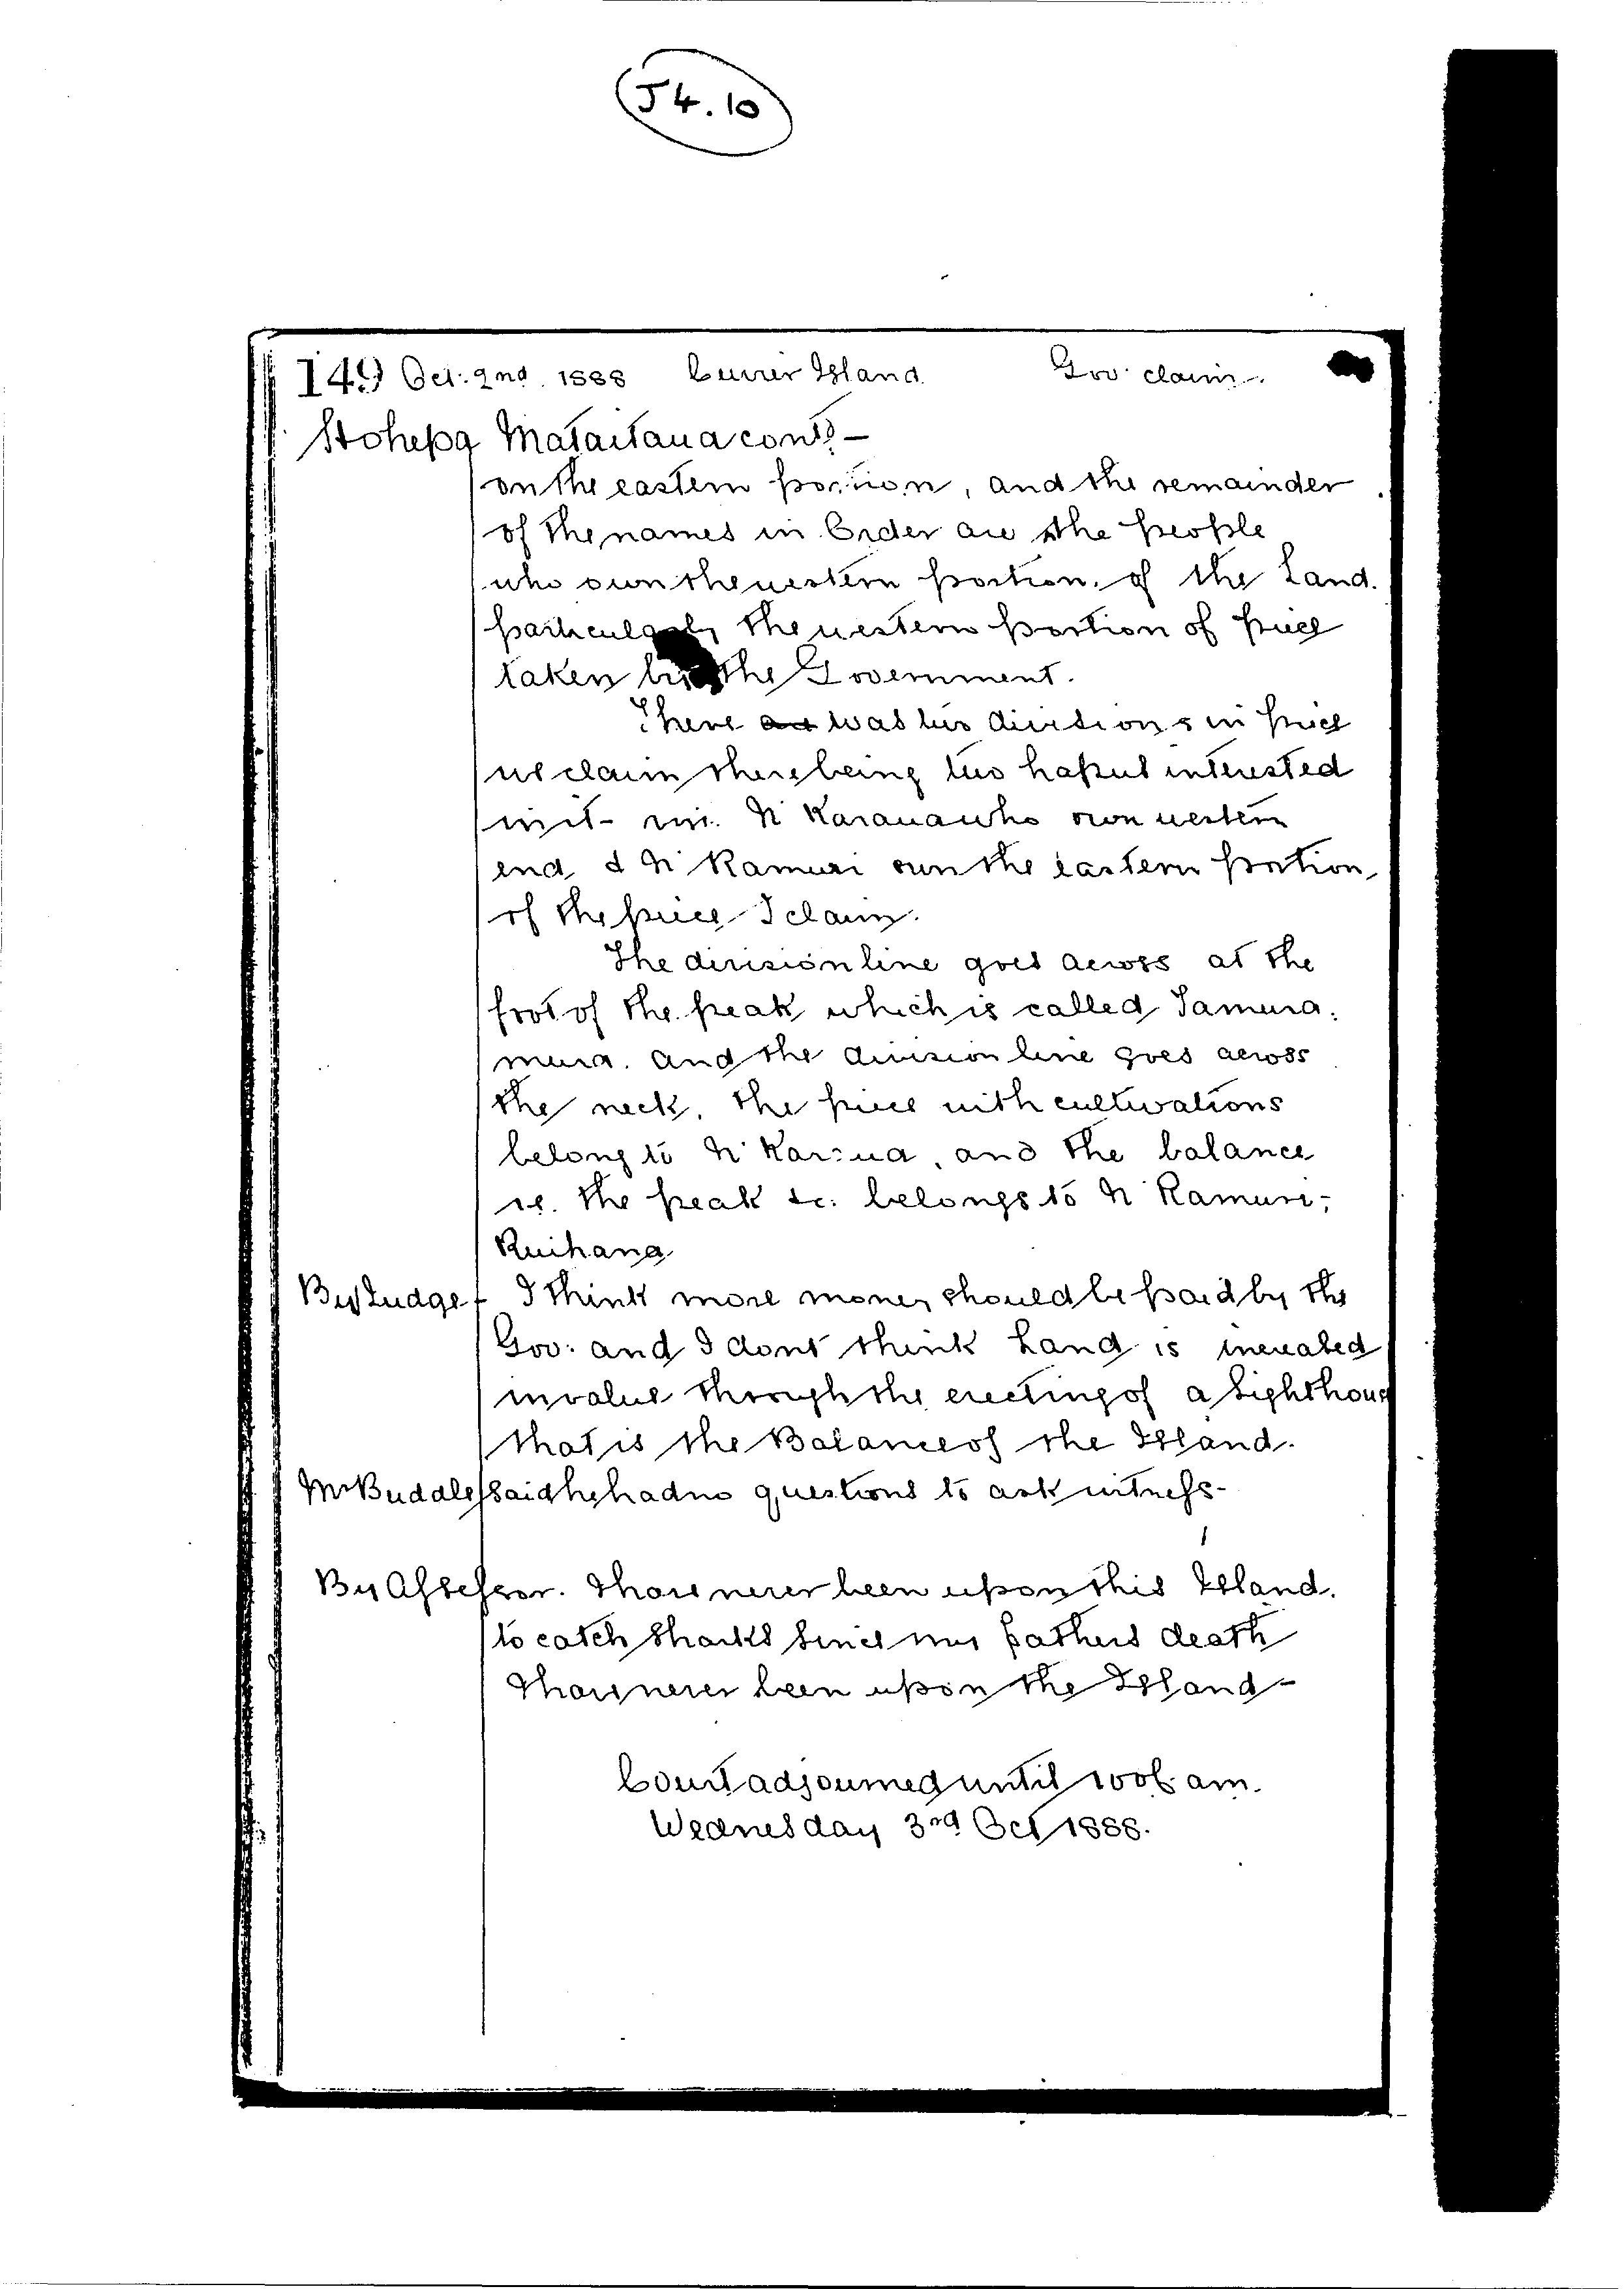 54.10
149 Oct: 2nd. 1888 Cuvier Island Gov: claim.
Hohepa Mataitaua contd -
on the eastern portion, and the remainder
of the names in Order are the people
who own the western portion. of the Land.
particularly the western portion of piece
taken by the Government.
There was two divisions in piece
we claim there being two hapus interested
in it N Karaua who own western
end & N Ramuri own the eastern portion
of the piece I claim.
The division line goes across at the
foot of the peak which is called Tamura.
mura. and the division line goes across
the neck. the piece with cultivations
belong to N Karaua, and the balance
ie. the peak &c: belongs to N Ramuri,
Ruihana
By Judge I think more money should be paid by the
Gov: and I dont think Land is increased
in value through the erecting of a Lighthouse
that is the Balance of the Island.
Mr Buddle said he had no questions to ask witness-
By Assessor. I have never been upon this Island.
to catch Sharks since my fathers death
I have never been upon the Island-
Court adjourned until am.
Wednesday 3rd Oct 1888.